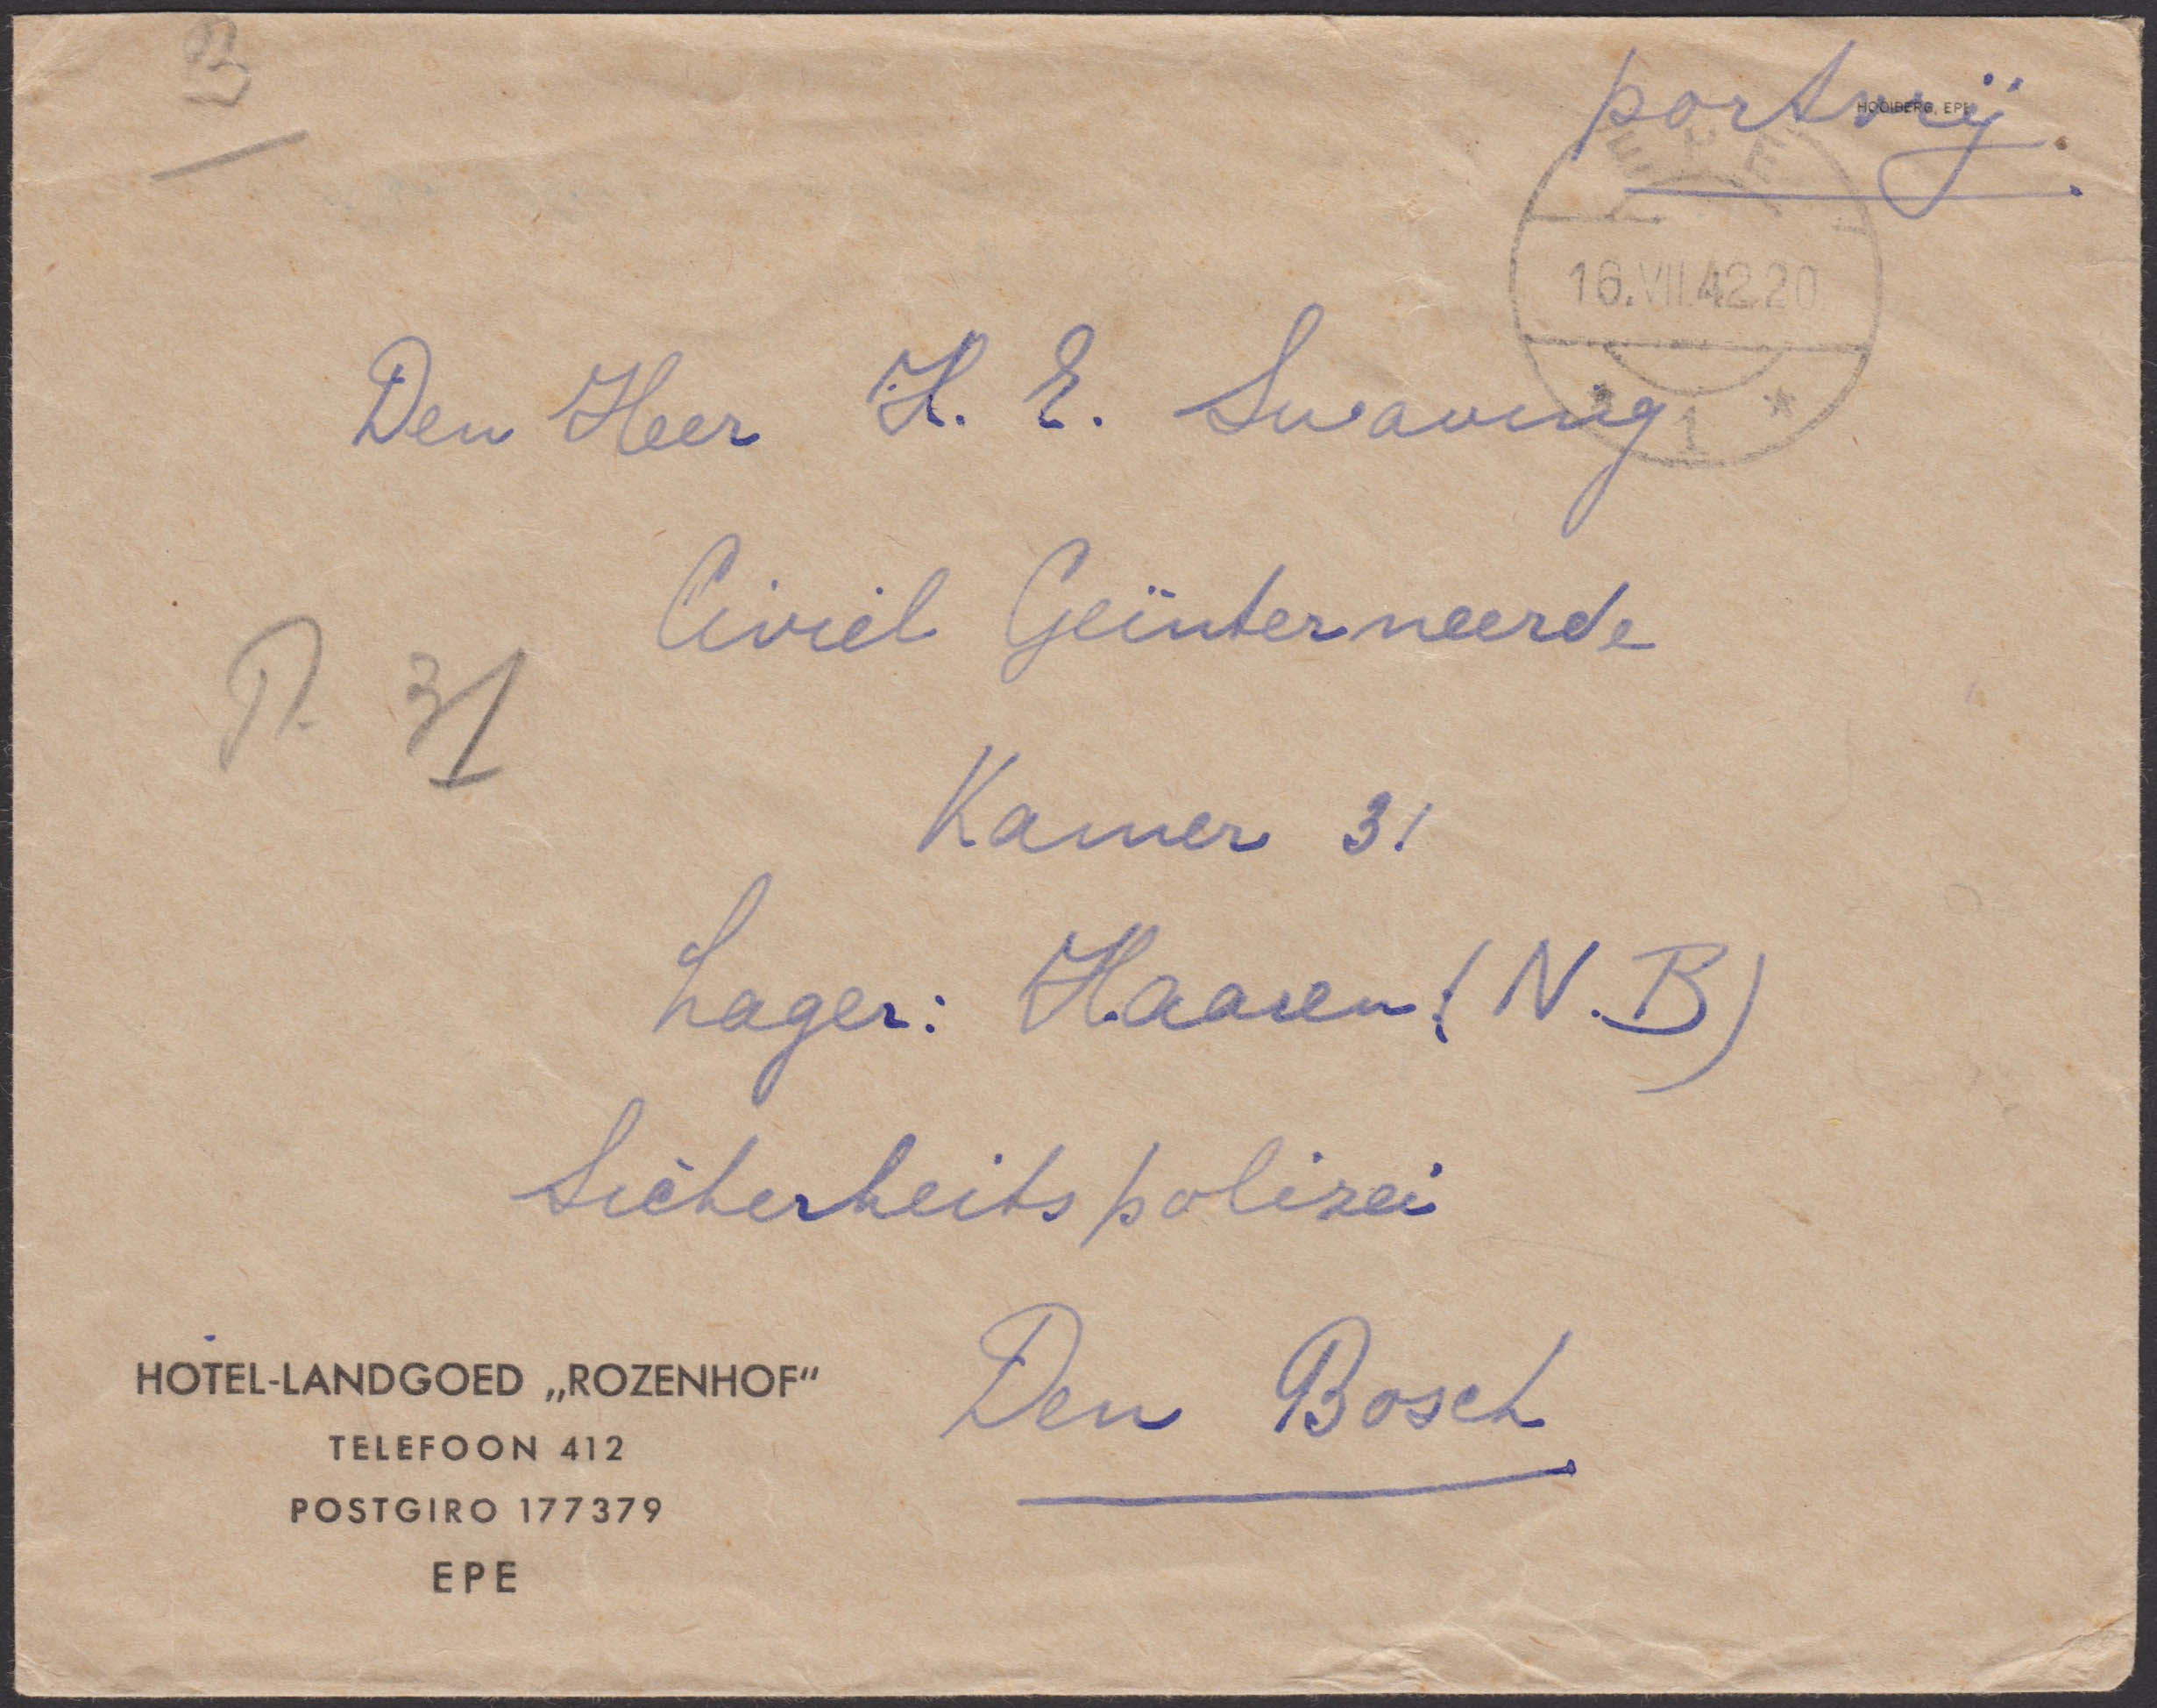 B
portvrij.
HOOIBERG, EPE
EPE
16.VII.42.20
* 1 *
Den Heer H. E. Swaving
Civiel Geïnterneerde
31
Kamer 31
Lager: Haaren (N.B)
Sicherheitspolizei
Den Bosch
HOTEL-LANDGOED „ROZENHOF“
TELEFOON 412
POSTGIRO 177379
EPE